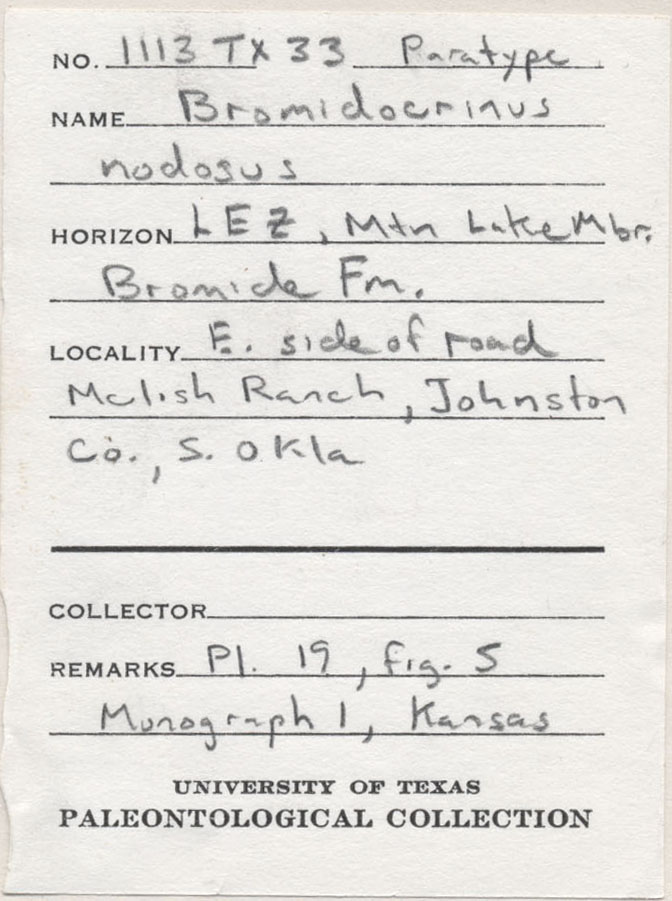 NO. 1113 TX 33 Paratype
NAME Bromidocrinus
nodosus
HORIZON LEZ, Mtn Lake Mbr.
Bromide Fm.
LOCALITY E. side of road
Mclish Ranch, Johnston
Co., S. Okla
COLLECTOR
REMARKS Pl. 19, fig. 5
Monograph 1, Kansas
UNIVERSITY OF TEXAS
PALEONTOLOGICAL COLLECTION